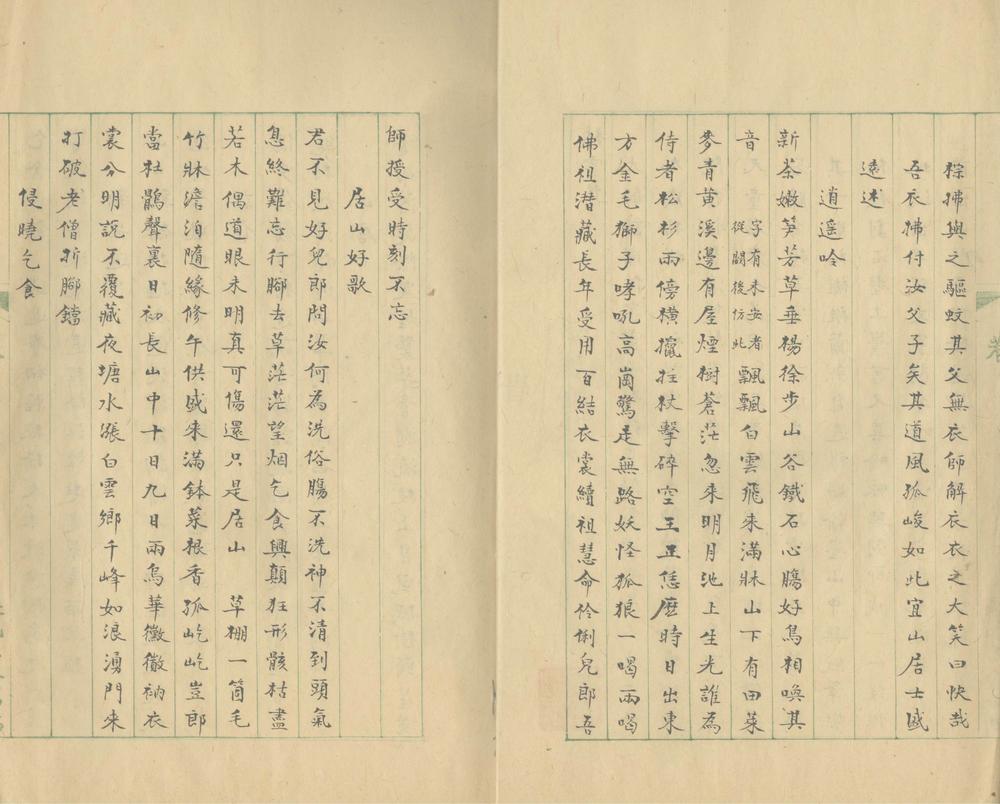 棕拂與之驅蚊其父無衣師解衣衣之大笑曰快哉
吾衣拂付汝父子矣其道風孤峻如此宜山居士盛
遠述
逍遥吟
新茶嫩笋芳草垂楊徐步山谷鐵石心腸好鳥相喚其
音字有未安者從闕後仿此飄飄白雲飛來滿牀山下有田菜
麥青黄溪邊有屋煙樹蒼茫忽來明月池上生光誰為
侍者松杉兩傍橫擔拄杖擊碎空王正恁麽時日出東
方金毛獅子哮吼高崗驚走無路妖怪狐狼一喝兩喝
佛祖潜藏長年受用百結衣裳續祖慧命伶俐兒郎吾
師授受時刻不忘
居山好歌
君不見好兒郎問汝何為洗俗腸不洗神不清到頭氣
息終難忘行腳去草茫茫望烟乞食興顛狂形骸枯盡
若木偶道眼未明真可傷還只是居山 草棚一箇毛
竹牀澹泊隨緣修午供盛來滿鉢菜根香孤屹屹豈郎
當杜鵑聲裏日初長山中十日九日雨烏華黴黴衲衣
裳分明説不覆藏夜塘水漲白雲鄉千峰如浪湧門來
打破老僧折腳鐺
侵曉乞食